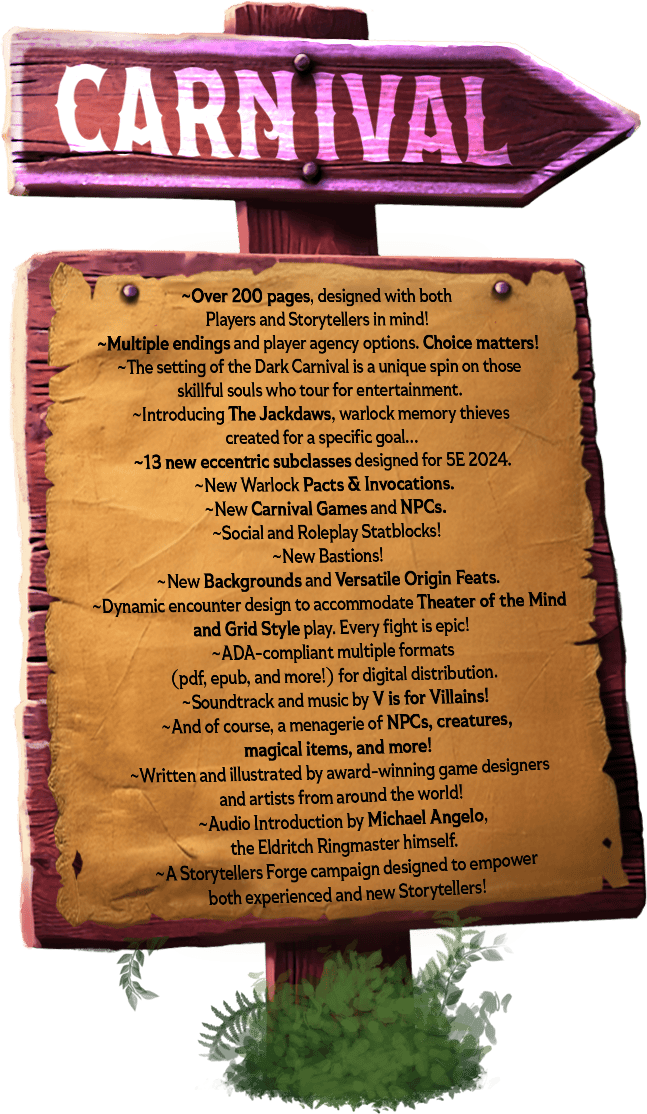 CARNIVAL
~Over 200 pages, designed with both
Players and Storytellers in mind!
~Multiple endings and player agency options. Choice matters!
~The setting of the Dark Carnival is a unique spin on those
skillful souls who tour for entertainment.
~Introducing The Jackdaws, warlock memory thieves
created for a specific goal...
~13 new eccentric subclasses designed for 5E 2024.
~New Warlock Pacts & Invocations.
~New Carnival Games and NPCs.
~Social and Roleplay Statblocks!
~New Bastions!
~New Backgrounds and Versatile Origin Feats.
~Dynamic encounter design to accommodate Theater of the Mind
and Grid Style play. Every fight is epic!
~ADA-compliant multiple formats
(pdf, epub, and more!) for digital distribution.
~Soundtrack and music by V is for Villains!
~And of course, a menagerie of NPCs, creatures,
magical items, and more!
~Written and illustrated by award-winning game designers
and artists from around the world!
~Audio Introduction by Michael Angelo,
the Eldritch Ringmaster himself.
~A Storytellers Forge campaign designed to empower
both experienced and new Storytellers!